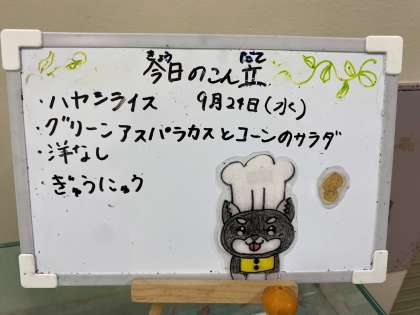 きょう だて
今日のこん立
・ハヤシライス 9月24日(水)
・グリーンアスパラガスとコーンのサラダ
・洋なし
・ぎゅうにゅう